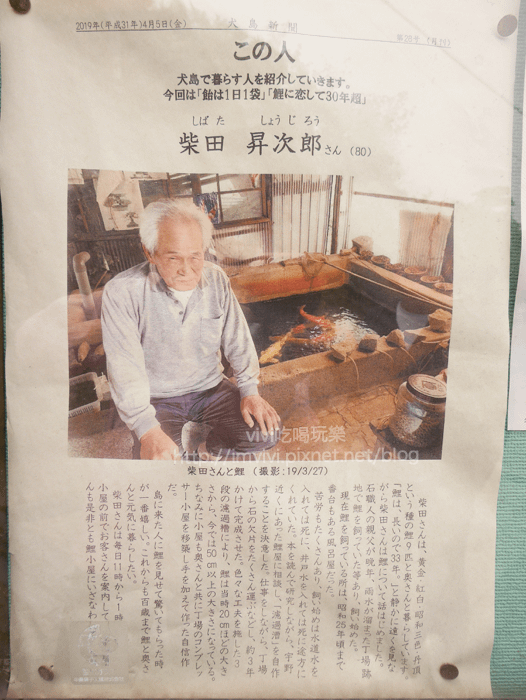 2019年(平成31年)4月5日(金)
犬島新聞
この人
犬島で暮らす人を紹介していきます。
今回は「飴は1日1袋」「鯉に恋して30年超」
しばた しょうじろう
柴田 昇次郎さん (80)
vivi吃喝玩樂
http://imvivi.pixnet.net/blog
柴田さんと鯉 (撮影:19/3/27)
柴田さんは、黄金・紅白・昭和三色・丹頂
という種の鯉9匹と奥さんと暮らしています。
「鯉は、長いので33年。」と静かに遠くを見な
がら柴田さんは鯉について話はじめました。
石職人の父親が晩年、雨水が溜まった丁場跡
地で鯉を飼っていた等あり、飼い始めた。
現在鯉を飼っている所は、昭和25年頃まで
番台もある風呂屋だった。
苦労もたくさんあり、飼い始めは水道水を
入れては死に、井戸水を入れては死に途方に
くれていた。本を読んで研究しながら、宇野
近くにあった鯉屋に相談し、"濾過漕"を自作
することを決意した。仕事をしながら、丁場
から石の欠片をたくさん運び出し、約3年
かけて完成させた。色々な工夫を施した3
段の濾過槽により、鯉は当時20cmほどの大き
さから、今では50cm以上の大きさになっている。
ちなみに小屋も奥さんと共に丁場のコンプレッ
サー小屋を移築し手を加えて作った自信作
だ。
島に来た人に鯉を見せて驚いてもらった時
が一番嬉しい。これからも百歳まで鯉と奥さ
んと元気に暮らしたい。
柴田さんは毎日11時から1時
小屋の前でお客さんを案内して
んも是非とも鯉小屋にいざなわ